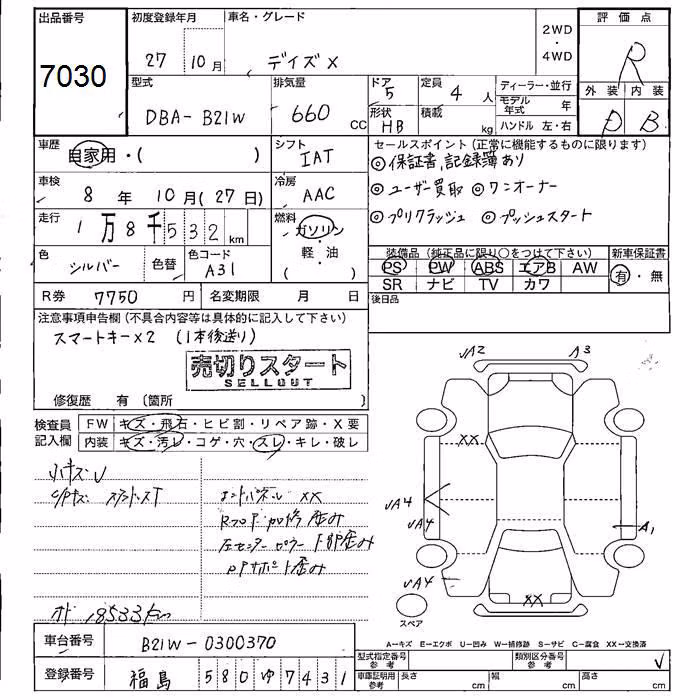 出品番号
7030
初度登録年月
27 10月
車名・グレード
デイズX
2WD
・
4WD
評価点
R
外装 内装
D B
型式
DBA-B21W
排気量
660 CC
ドア
5
形状
HB
定員
4 人
積載
kg
ディーラー・並行
モデル年式 年
ハンドル 左・右
車歴
自家用・( )
シフト
IAT
車検
8 年 10 月(27日)
冷房
AAC
走行
1万8千532km
燃料
ガソリン
・
軽・油
( )
色
シルバー
色替
色コード
A31
R券 7750 円
名変期限 月 日
セールスポイント(正常に機能するものに限ります)
◎保証書,記録簿あり
◎ユーザー買取 ◎ワンオーナー
◎プリクラッシュ ◎プッシュスタート
装備品(純正品に限り○をつけて下さい)
PS PW ABS エアB AW
SR ナビ TV カワ
新車保証書
有・無
後日品
注意事項申告欄(不具合内容等は具体的に記入して下さい)
スマートキーx2 (1本後送り)
売切りスタート
SELLOUT
修復歴 有〔箇所 〕
検査員
記入欄
FW キズ・飛石・ヒビ割・リペア跡・X要
内装 キズ・汚レ・コゲ・穴・スレ・キレ・破レ
小キズU
XX
Rフロア 加修 歪み
左センターピラー 下部歪み
サポート歪み
18533km
UA2 A3
XX
UA4
UA4
A1
UA4
XX
スペア
A-キズ E-エクボ U-凹み W-補修跡 S-サビ C-腐食 XX-交換済
車台番号 B21W-0300370
登録番号 福島 580 ゆ 7431
型式指定番号
参考
類別区分番号
参考
車庫証明用
参考
長さ cm
幅 cm
高さ cm